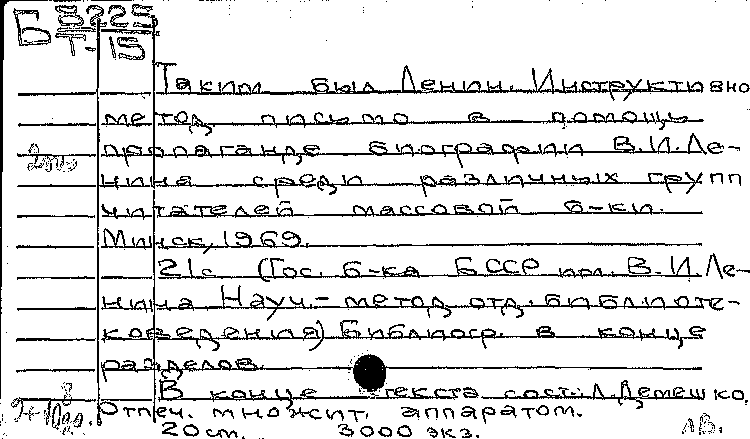 Б 8225
Т-15
Таким был Ленин. Инструктивно
метод письмо в помощь
пропаганде биографии В.И.Ле-
нина среди различных групп
читателей массовой б-ки.
Минск, 1969.
21с (Гос. б-ка БССР им. В.И.Ле-
нина Науч.-метод отд. библиоте-
коведения) Библиогр. в конце
разделов.
В конце текста сост.: Л.Демешко.
Отпеч. множит. аппаратом.
20 ст. 3000 экз. лВ.